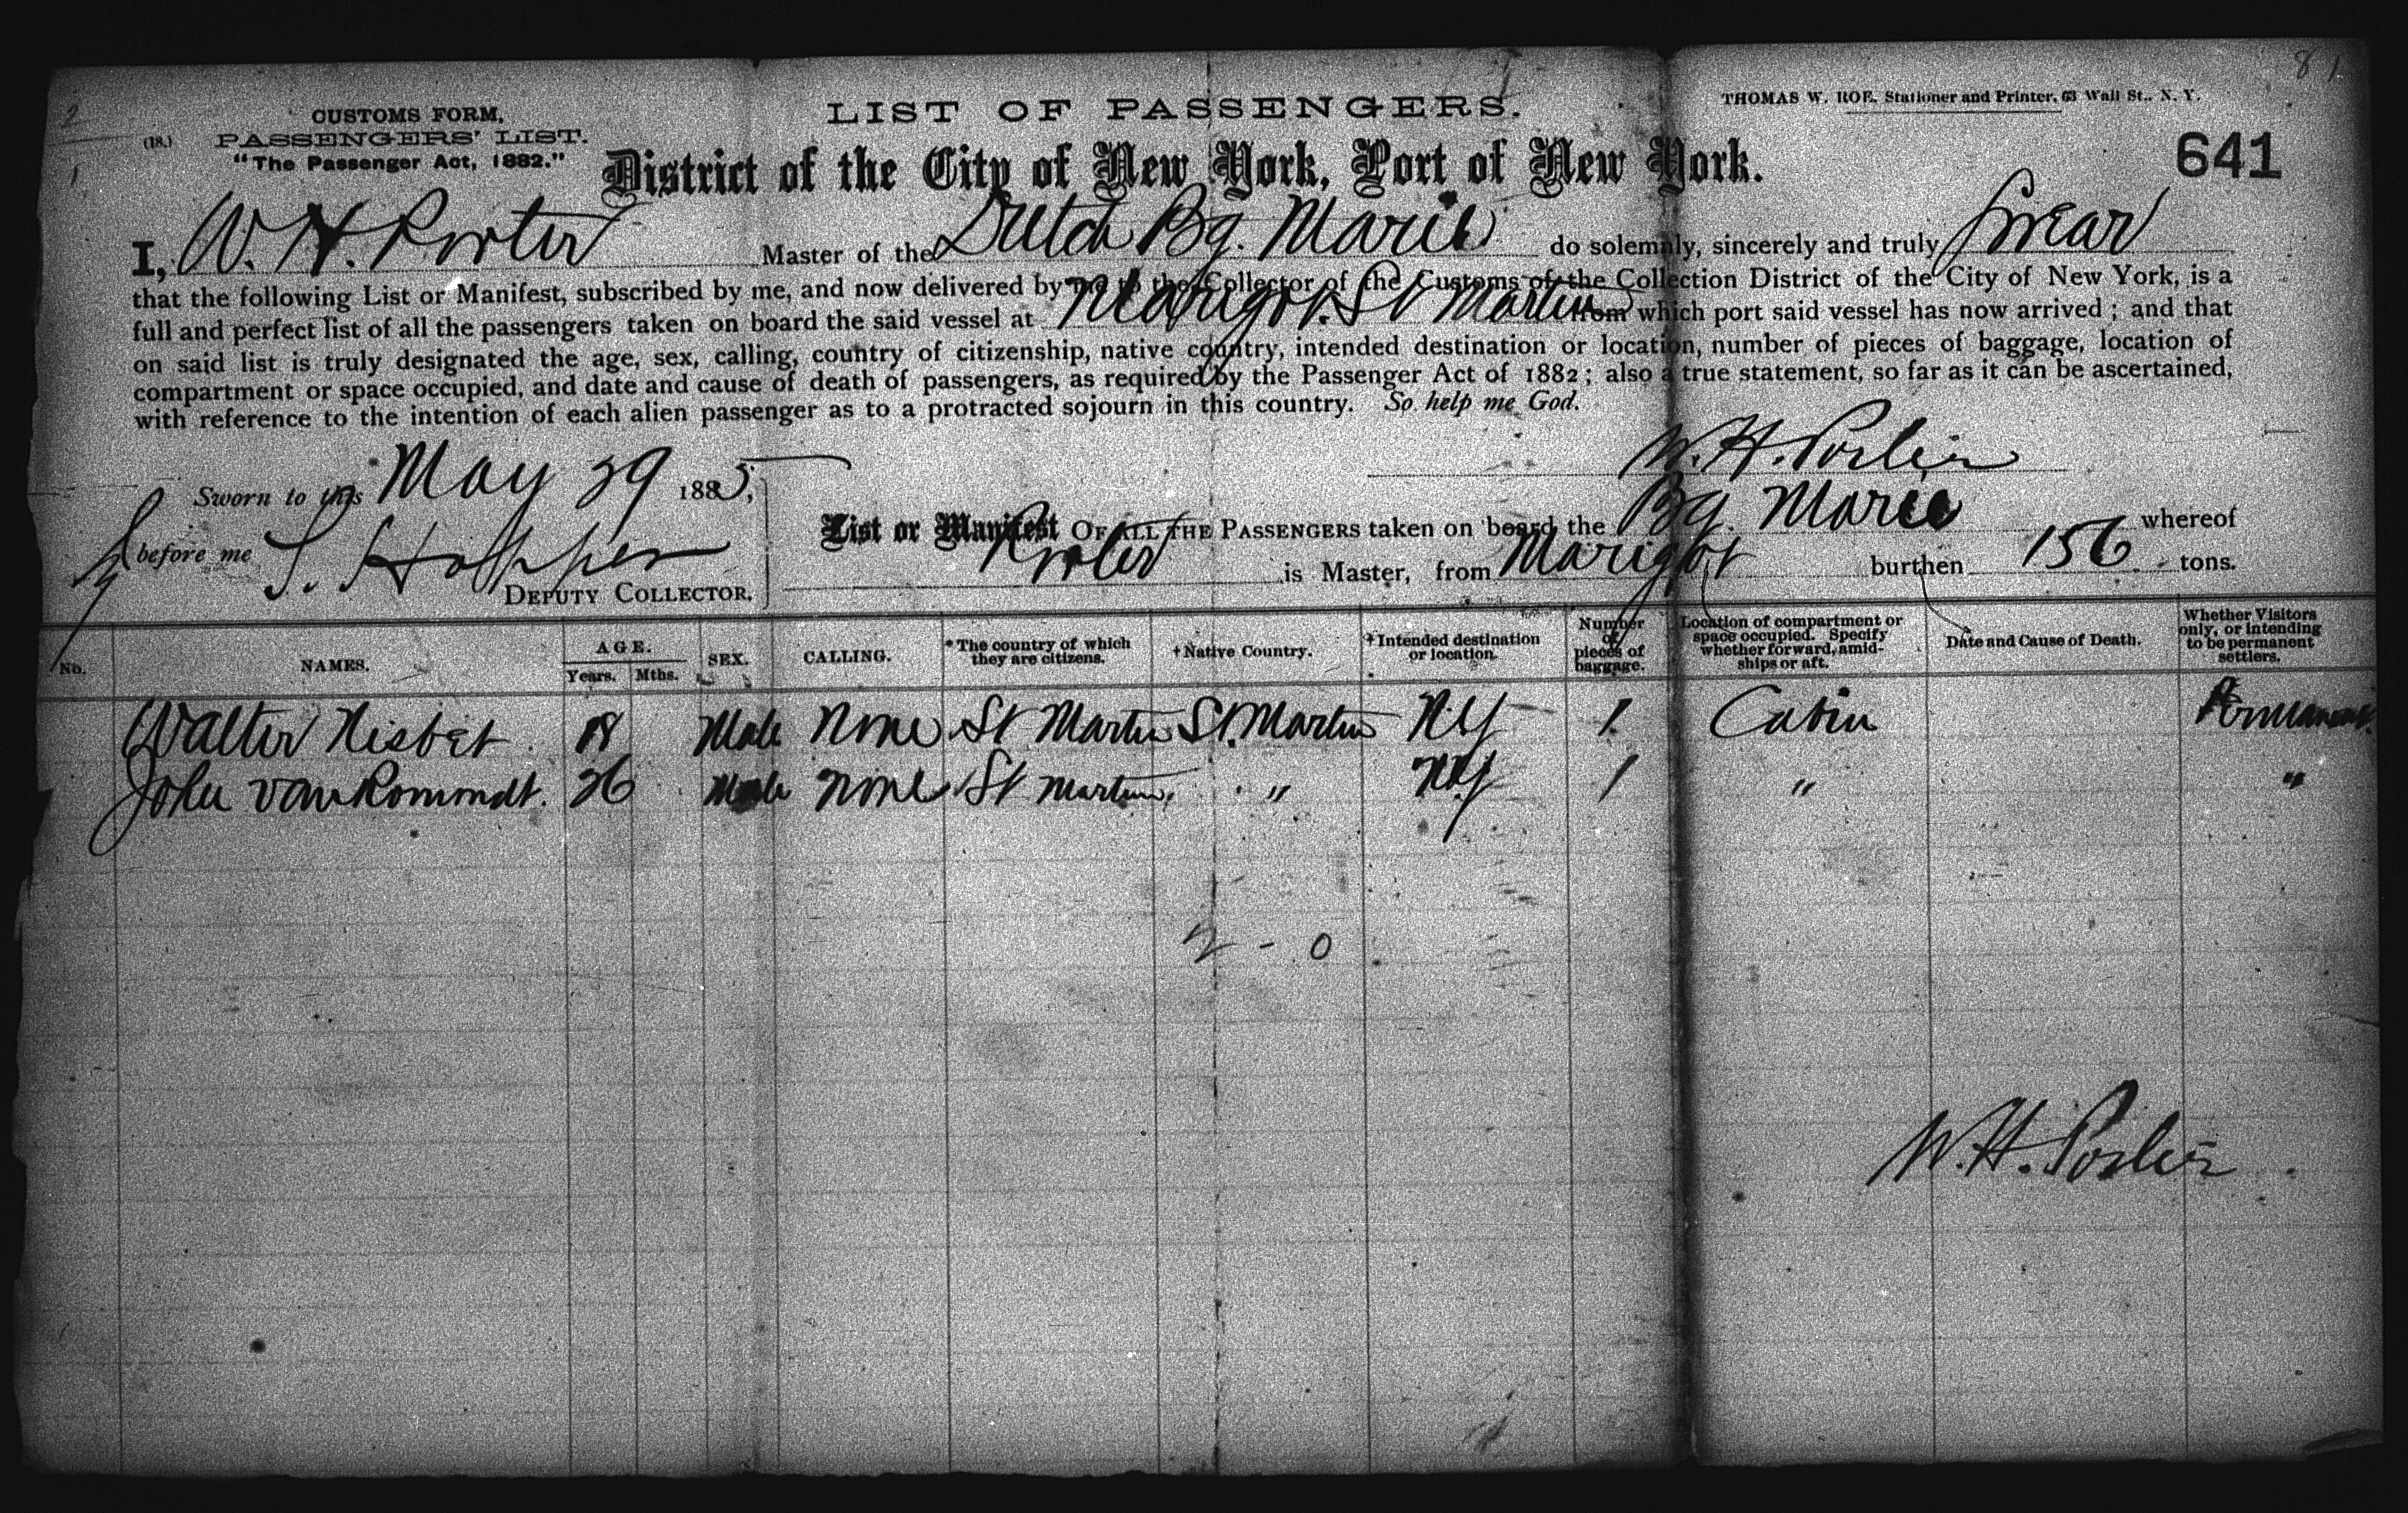 8 1
2
1
CUSTOMS FORM,
(18.) PASSENGERS' LIST.
"The Passenger Act, 1882."
LIST OF PASSENGERS.
THOMAS W. ROE, Stationer and Printer, 63 Wall St., N. Y.
District of the City of New York, Port of New York.
641
I, W. H. Porter Master of the Dutch Bg. Marie do solemnly, sincerely and truly swear
that the following List or Manifest, subscribed by me, and now delivered by me to the Collector of the Customs of the Collection District of the City of New York, is a
full and perfect list of all the passengers taken on board the said vessel at Marigot. St Martin from which port said vessel has now arrived ; and that
on said list is truly designated the age, sex, calling, country of citizenship, native country, intended destination or location, number of pieces of baggage, location of
compartment or space occupied, and date and cause of death of passengers, as required by the Passenger Act of 1882 ; also a true statement, so far as it can be ascertained,
with reference to the intention of each alien passenger as to a protracted sojourn in this country. So help me God.
W. H. Porter
Sworn to this May 29 1885,
before me
DEPUTY COLLECTOR.
List or Manifest OF ALL THE PASSENGERS taken on board the Bg. Marie whereof
Porter is Master, from Marigot burthen 156 tons.
No. NAMES. AGE. Years. Mths. SEX. CALLING. * The country of which they are citizens. † Native Country. ‡ Intended destination or location. Number of pieces of baggage. Location of compartment or space occupied. Specify whether forward, amidships or aft. Date and Cause of Death. Whether Visitors only, or intending to be permanent settlers.
Walter Nisbet 18 Male None St Martin St. Martin N.Y 1 Cabin Permanent
John van Rommdt. 26 Male none St Martin, " N.Y 1 " "
2 - 0
W. H. Porter